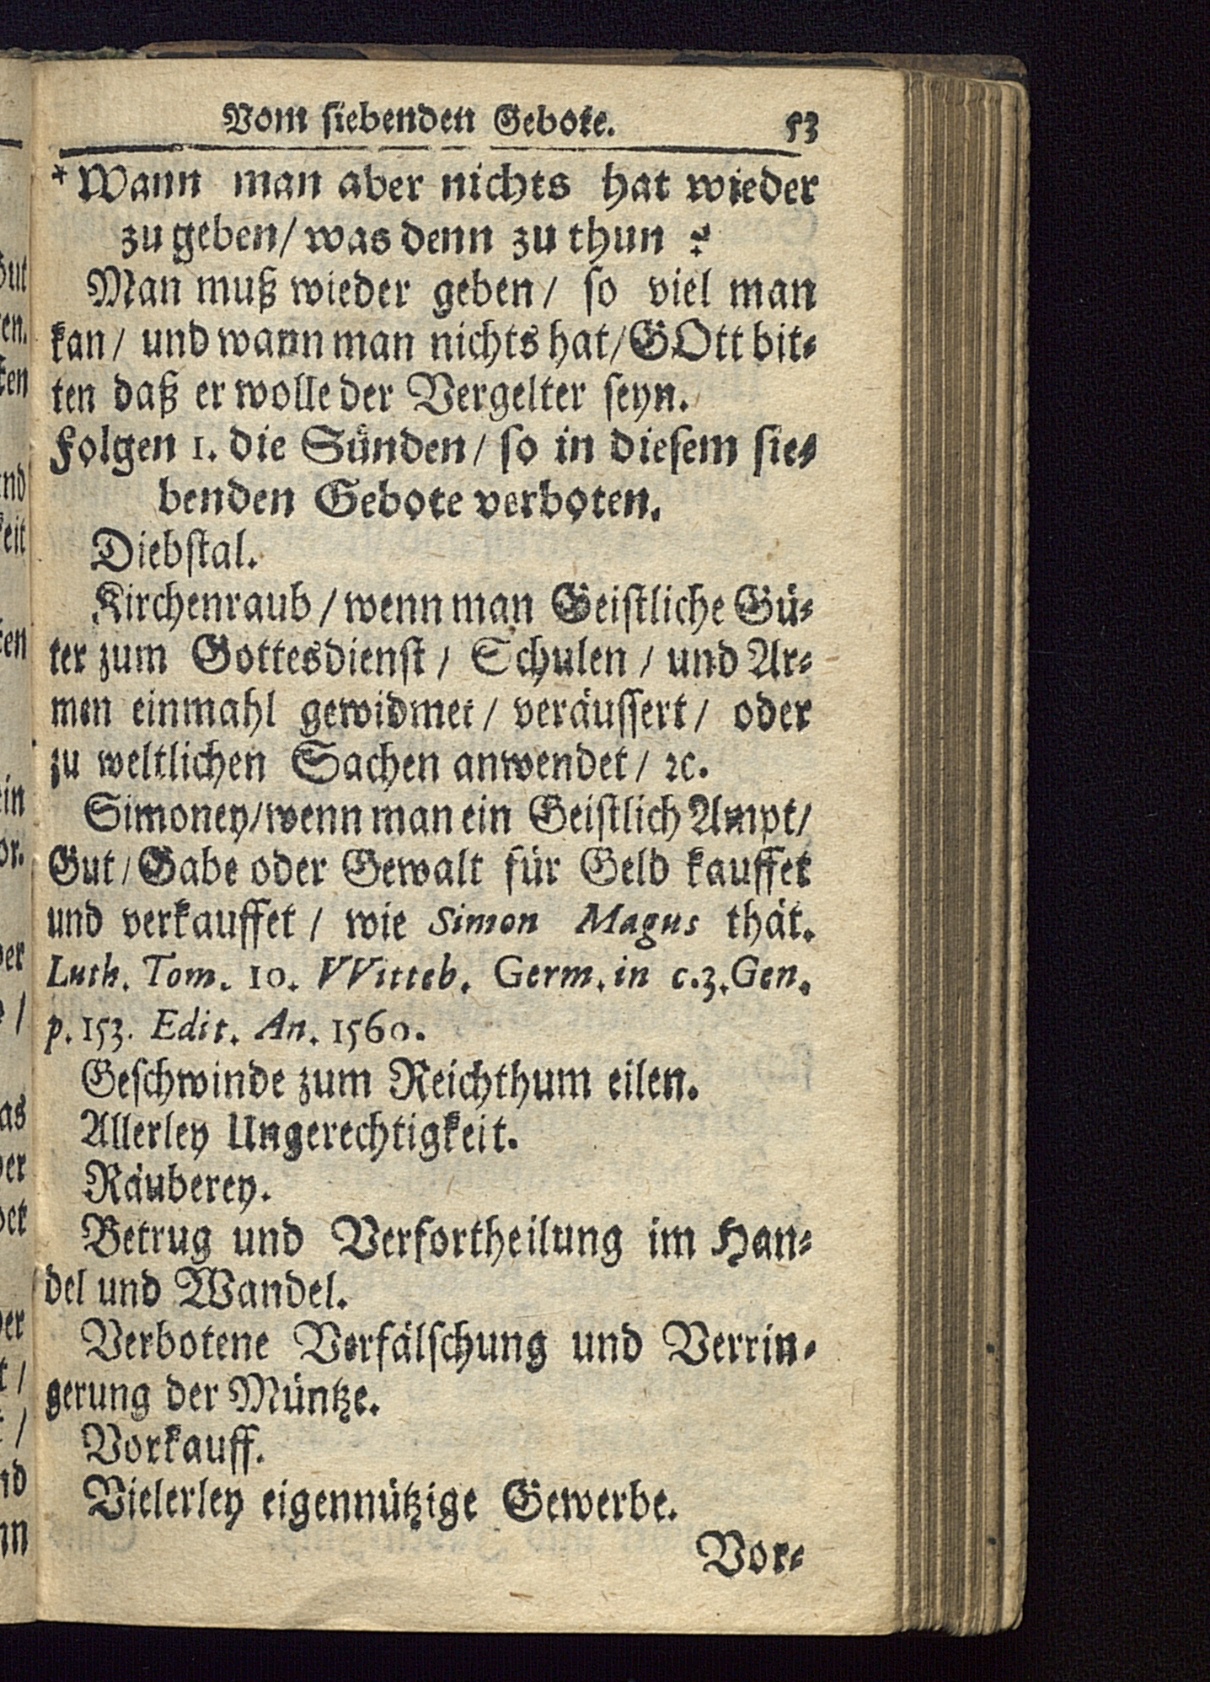 Vom siebenden Gebote. 53
*Wann man aber nichts hat wieder
zu geben/ was denn zu thun?
Man muß wieder geben/ so viel man
kan/ und wann man nichts hat/ GOtt bit-
ten daß er wolle der Vergelter seyn.
Folgen 1. die Sünden/ so in diesem sie-
benden Gebote verboten.
Diebstal.
Kirchenraub/ wenn man Geistliche Gü-
ter zum Gottesdienst/ Schulen/ und Ar-
men einmahl gewidmet/ veräussert/ oder
zu weltlichen Sachen anwendet/ ꝛc.
Simoney/ wenn man ein Geistlich Ampt/
Gut/ Gabe oder Gewalt für Geld kauffet
und verkauffet/ wie Simon Magus thät.
Luth. Tom. 10. VVitteb. Germ. in c.3. Gen.
p. 153. Edit. An. 1560.
Geschwinde zum Reichthum eilen.
Allerley Ungerechtigkeit.
Räuberey.
Betrug und Verfortheilung im Han-
del und Wandel.
Verbotene Verfälschung und Verrin-
gerung der Müntze.
Vorkauff.
Vielerley eigennützige Gewerbe.
Vor-